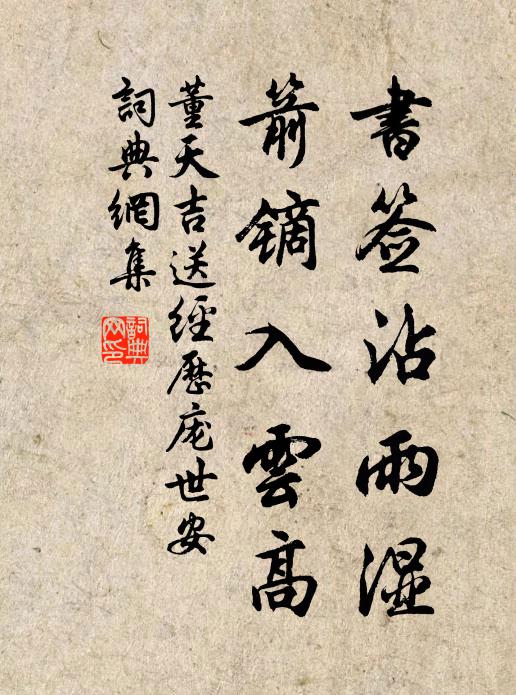 書签沾雨湿
箭镝入雲高
董天吉送經歷庞世安
詞典網集
詞典
网印